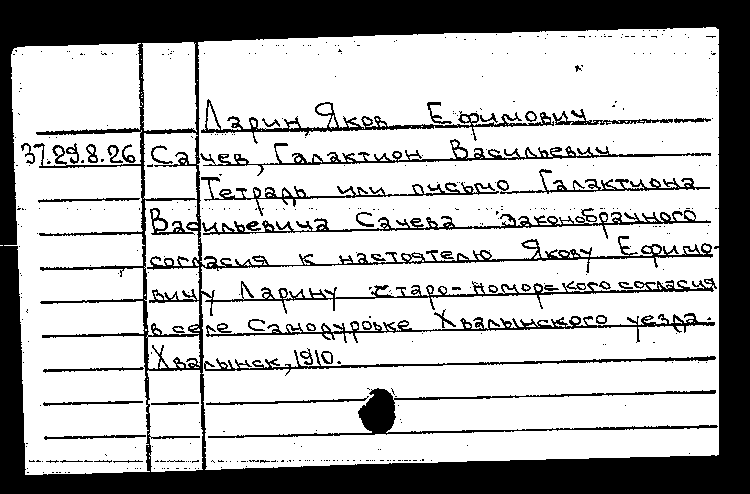 Ларин, Яков Ефимович
37.29.8.26 Сачев, Галактион Васильевич
Тетрадь или письмо Галактиона
Васильевича Сачева законобрачного
согласия к настоятелю Якову Ефимо-
вичу Ларину старо-поморского согласия
в селе Самодуровке Хвалынского уезда.
Хвалынск, 1910.